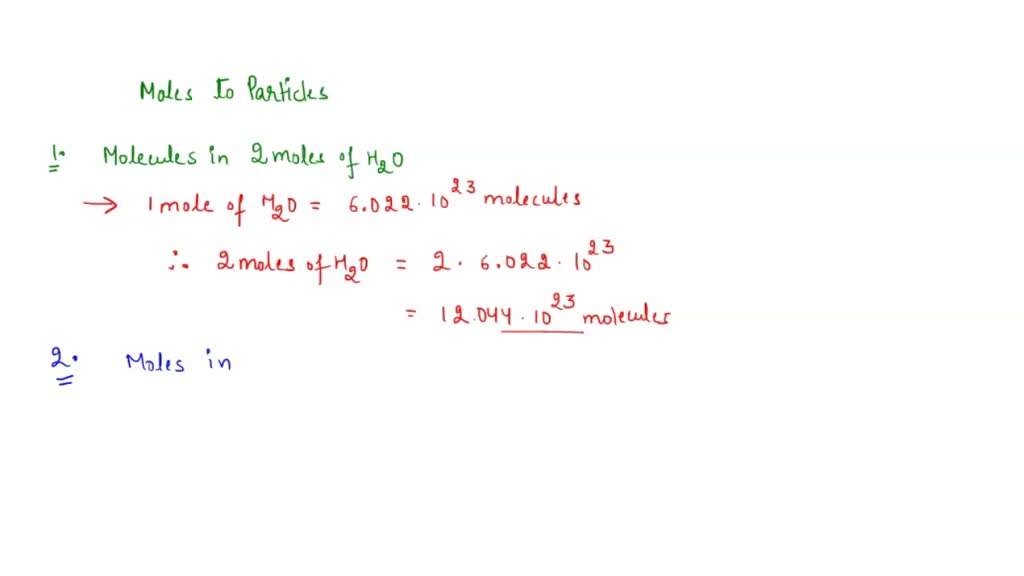 Moles to Particles
1. Molecules in 2 moles of H₂O
→ 1 mole of H₂O = 6.022 · 10²³ molecules
∴ 2 moles of H₂O = 2 · 6.022 · 10²³
= 12.044 · 10²³ molecules
2. Moles in